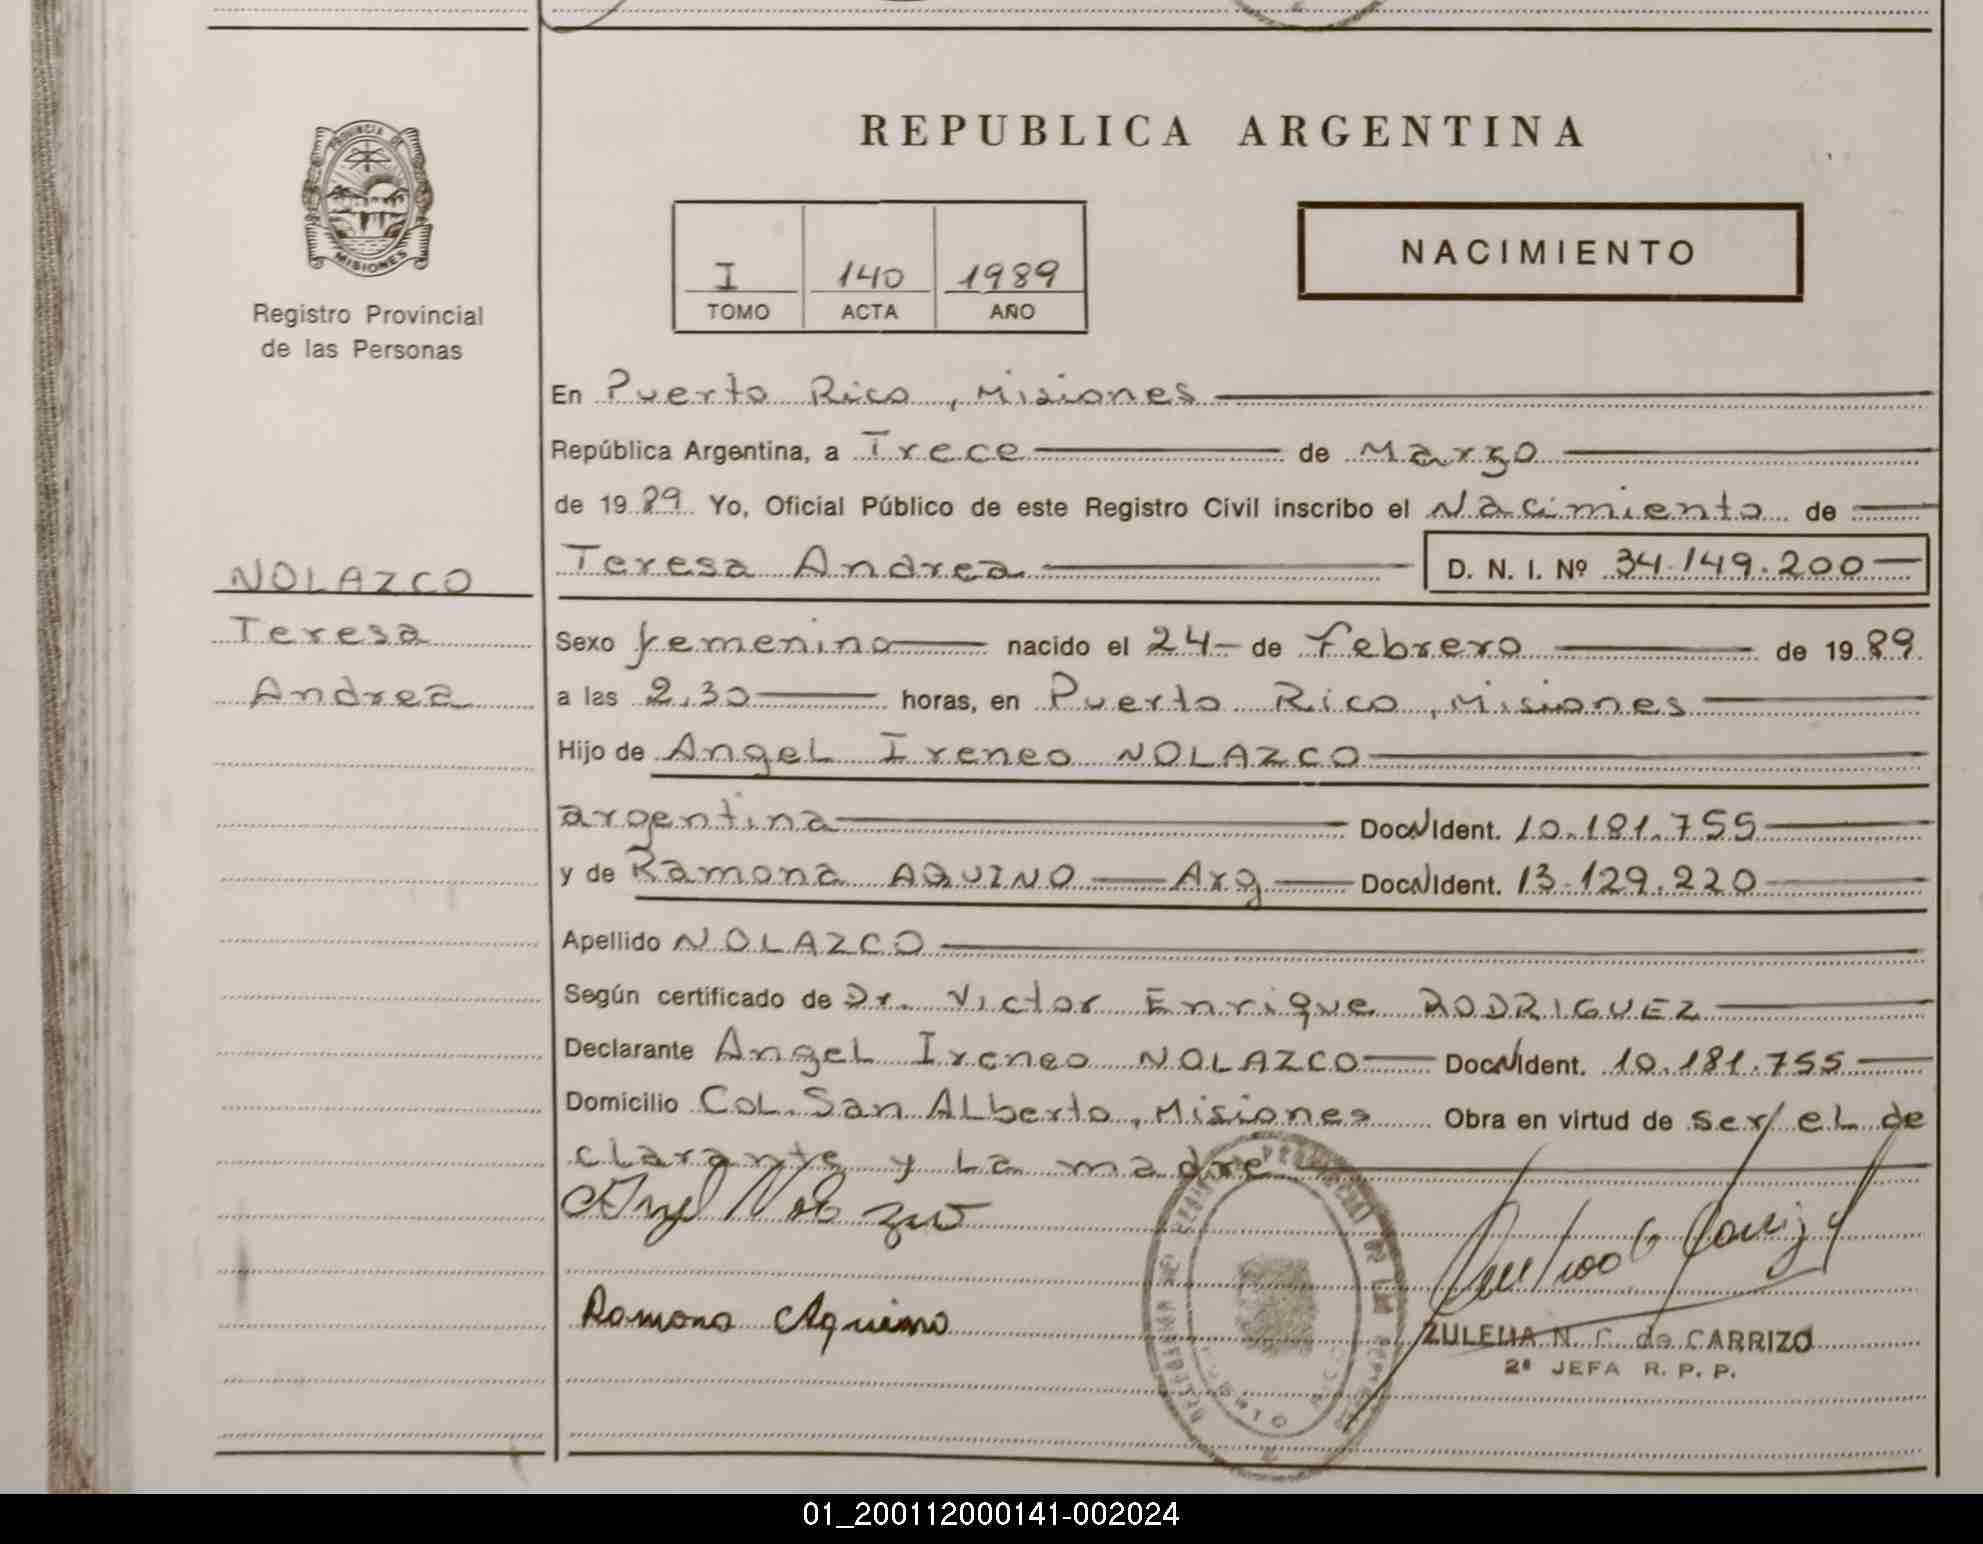 PROVINCIA DE
MISIONES
Registro Provincial
de las Personas
NOLAZCO
Teresa
Andrea
REPUBLICA ARGENTINA
I 140 1989
TOMO ACTA AÑO
NACIMIENTO
En Puerto Rico, Misiones
República Argentina, a Trece de Marzo
de 1989 Yo, Oficial Público de este Registro Civil inscribo el Nacimiento de
Teresa Andrea D. N. I. Nº 34.149.200
Sexo femenino nacido el 24 de Febrero de 1989
a las 2,30 horas, en Puerto Rico, Misiones
Hijo de Angel Ireneo NOLAZCO
argentina Doc N Ident. 10.181.755
y de Ramona AQUINO Arg Doc N Ident. 13.129.220
Apellido NOLAZCO
Según certificado de Dr. Victor Enrique RODRIGUEZ
Declarante Angel Ireneo NOLAZCO Doc N Ident. 10.181.755
Domicilio Col. San Alberto, Misiones Obra en virtud de ser/ el de
clarante y la madre
Angel Nolazco
Ramona Aquino
ZULEMA N. C. de CARRIZO
2ª JEFA R. P. P.
01_200112000141-002024